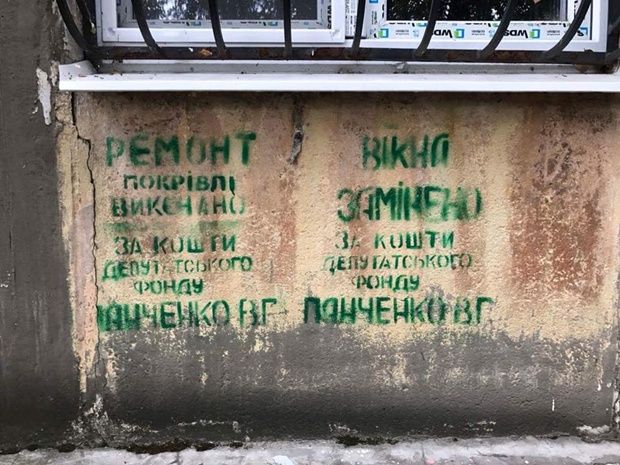 РЕМОНТ
ПОКРІВЛІ
ВИКОНАНО
ЗА КОШТИ
ДЕПУТАТСЬКОГО
ФОНДУ
ПАНЧЕНКО В.Г
ВІКНА
ЗАМІНЕНО
ЗА КОШТИ
ДЕПУТАТСЬКОГО
ФОНДУ
ПАНЧЕНКО В.Г
WDS
WDS